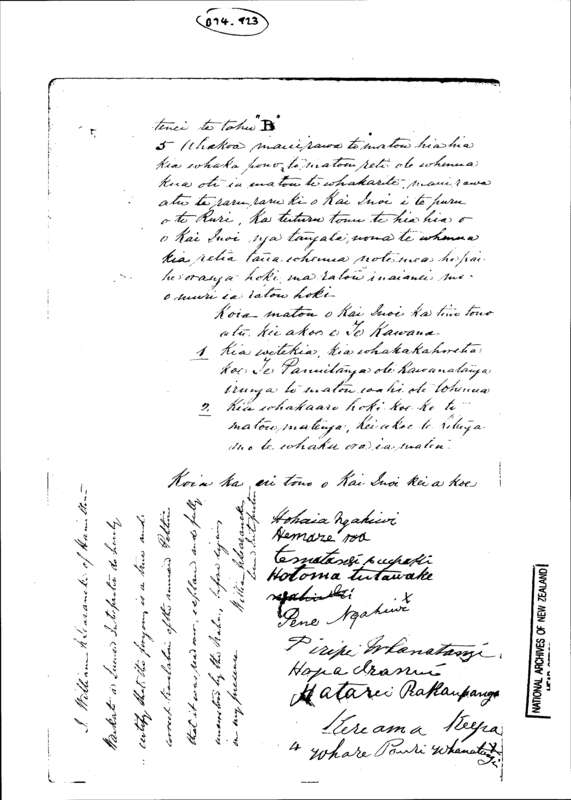 074.923
tenei te tohu "B"
5 Ahakoa maui rawa te matou hia hia
kia whaka pono te matou reti ote whenua
kua oti ia matou te whakarite, maui rawa
atu te raru raru ki o Kai Inoi i te puru
o te Ruri, Ka tuturu tonu te hia hia o
o Kai Inoi nga tangata nona te whenua
kia retia tana whenua notemea he pai
he oranga hoki ma ratou inaianei mo
o muri ia ratou hoki
Koia matou o Kai Inoi ka tino tono
atu kia akoe e Te Kawana
1 Kia wetekia, kia whakakahoretia
koe Te Panuitanga ote Kawanatanga
irunga to matou wahi ote whenua
2. Kia whakaaro hoki koe ko te
matou matenga, kei a koe te
mo te whaka ora ia matou
Koia ka tono o Kai Inoi kei a koe
Hohaia Ngahiwi
Hemare
Hotoma tutawake
Pene Ngahiwi x
Piripi Whanatangi
Hapa
Matarei Rakaupanga
Kereama Keepa
4 Whare Pouri Whanatangi x
I William of Hamilton
Waikato a Licensed Interpreter do hereby
certify that the foregoing is a true and
correct translation of the annexed Petition
that it was read over, explained and fully
understood by the Natives, before signing
in my presence
William
Licensed Interpreter
NATIONAL ARCHIVES OF NEW ZEALAND